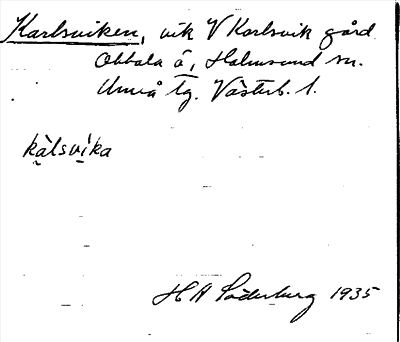 Karlsviken, vik V Karlsvik gård
Obbola ö, Holmsund sn.
Umeå tg. Västerb. l.
kàlsvíka
H A Söderberg 1935